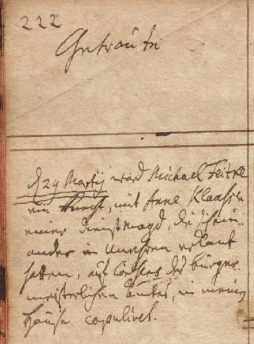 222
Getraute
d 29 Martij ward Michael Feitke
ein Knecht, mit Anne Klaaßen
einer Dienstmagd, die sich ein
ander in Unehren
hatten, auf Consens des bürger
meisterlichen Amtes, in meinem
Hause copuliret.